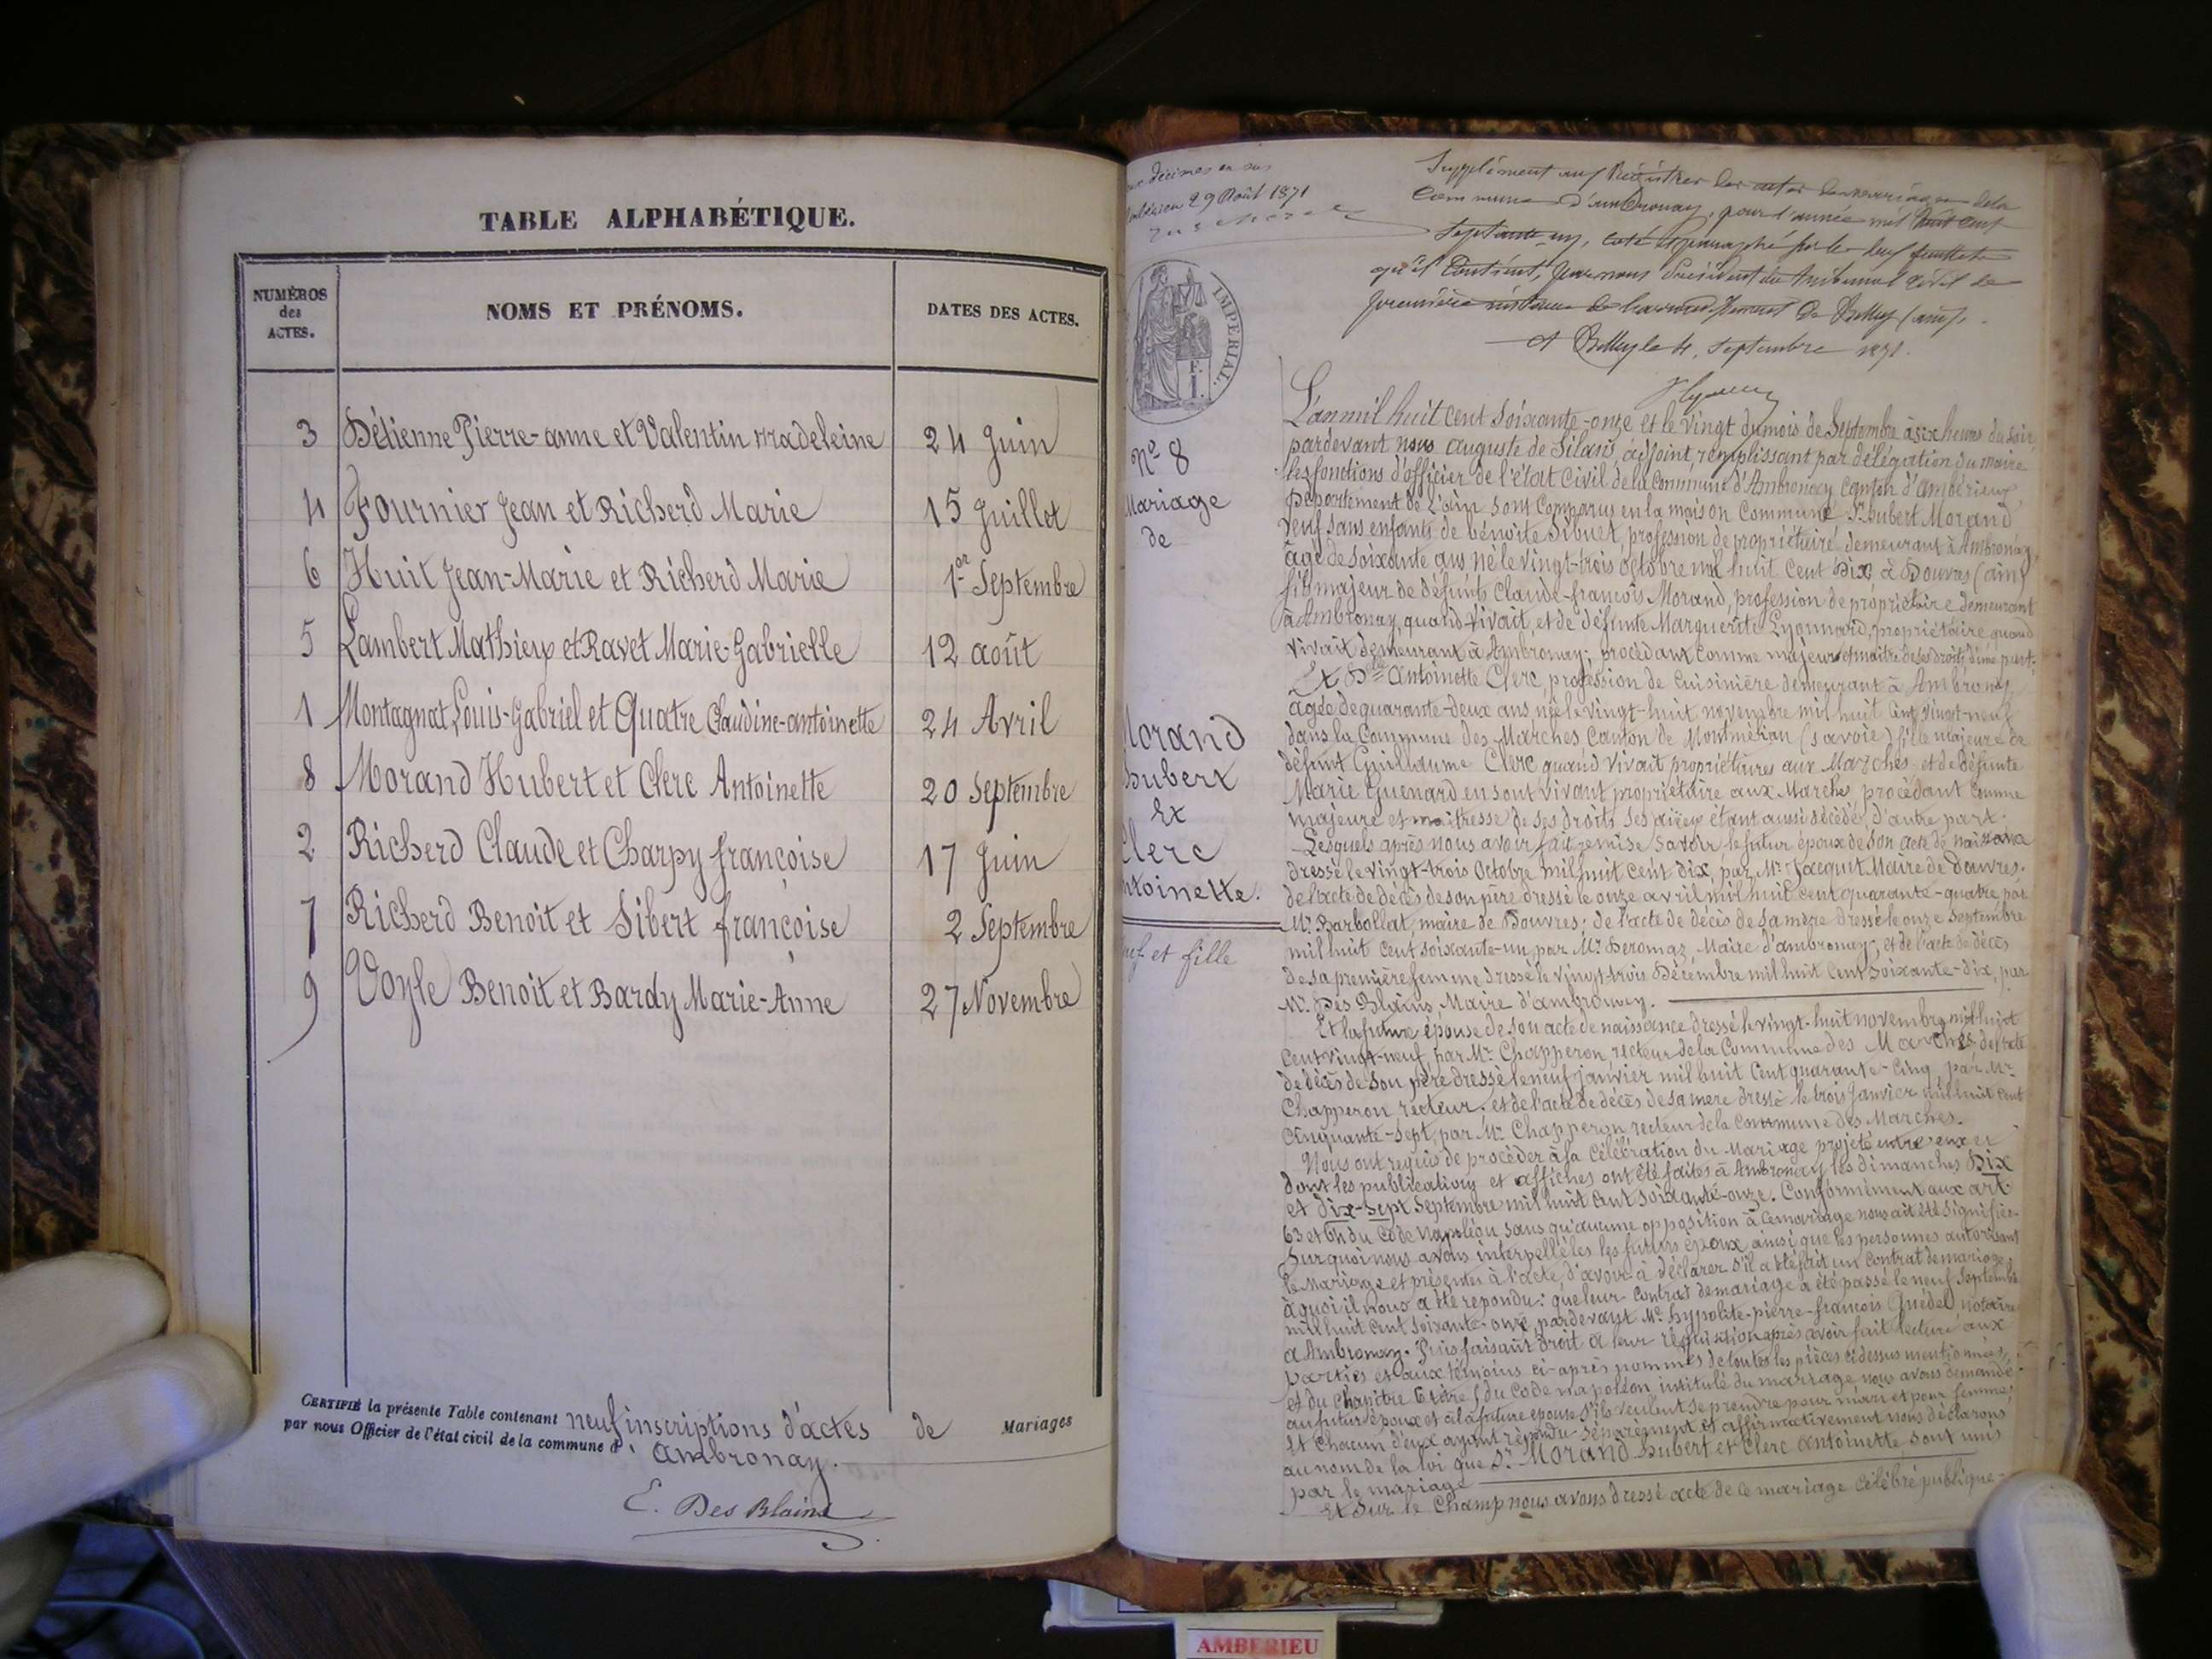 TABLE ALPHABÉTIQUE.
NUMÉROS des ACTES.
NOMS ET PRÉNOMS.
DATES DES ACTES.
3 Détienne Pierre-anne et Valentin Madeleine 24 Juin
4 Fournier Jean et Richerd Marie 15 Juillet
6 Huit Jean-Marie et Richerd Marie 1er Septembre
5 Lambert Mathieu et Ravet Marie-Gabrielle 12 août
1 Montagnat Louis-Gabriel et Quatre Claudine-antoinette 24 Avril
8 Morand Hubert et Clerc Antoinette 20 Septembre
2 Richerd Claude et Charpy françoise 17 Juin
7 Richerd Benoit et Sibert françoise 2 Septembre
9 Voyle Benoit et Bardy Marie-Anne 27 Novembre
CERTIFIÉ la présente Table contenant neuf inscriptions d'actes de Mariages
par nous Officier de l'état civil de la commune d' Ambronay.
E. Des Blains
décimes en sus
29 Août 1871
IMPERIAL.
Supplément aux Régistres des actes de mariages de la
Commune d'ambronay, pour l'année mil huit cent
septante-un, coté et paraphé par les feuillets
qu'il contient, par nous Président du tribunal civil de
première instance de l'arrondissement de Belley (ain).
A Belley le 4, Septembre 1871.
No 8
Mariage
de
Morand
hubert
Et
Clerc
Antoinette.
et fille
L'an mil huit cent soixante-onze et le vingt du mois de Septembre à six heures du soir
pardevant nous auguste de Silans, adjoint, remplissant par délégation du maire
les fonctions d'officier de l'état Civil de la Commune d'Ambronay Canton d'ambérieux
Département de l'ain sont Comparus en la maison Commune Sr hubert Morand
veuf sans enfants de bénoite Sibuet, profession de propriétaire demeurant à Ambronay,
âgé de soixante ans né le vingt-trois octobre mil huit cent Dix à Douvres (ain)
fils majeur de défunts Claude-françois Morand, profession de propriétaire demeurant
à Ambronay, quand vivait, et de défunte Marguerite Lyonnard, propriétaire quand
vivait demeurant à Ambronay; procédant comme majeur et maitre de ses droits d'une part.
Et Dlle Antoinette Clerc, profession de Cuisinière demeurant à Ambronay
âgée de quarante-deux ans née le vingt-huit novembre mil huit cent vingt-neuf
dans la Commune des Marches Canton de Montmélian (Savoie) fille majeure de
défunt Guillaume Clerc quand vivait propriétaires aux Marches et de défunte
Marie Guenard en sont vivant propriétaire aux Marches, procédant comme
majeure et maitresse de ses droits ses aïeux étant aussi décédés, d'autre part.
Lesquels après nous avoir fait remise savoir le futur époux de son acte de naissance
dressé le vingt-trois Octobre mil huit cent dix, par Mr Jacquet Maire de Douvres.
de l'acte de décès de son père dressé le onze avril mil huit cent quarante-quatre par
Mr Barbollat, maire de Douvres; de l'acte de décès de sa mère dressé le onze Septembre
mil huit cent soixante-un par Mr Deromaz, Maire d'ambronay, et de l'acte de décès
de sa première femme dressé le vingt-trois Décembre mil huit cent soixante-dix, par
Mr Des Blains, Maire d'ambronay.
Et la future épouse de son acte de naissance dressé le vingt-huit novembre mil huit
cent vingt-neuf, par Mr Chapperon, recteur de la Commune des Marches de l'acte
de décès de son père dressé le neuf janvier mil huit cent quarante-cinq, par Mr
Chapperon recteur. et de l'acte de décès de sa mère dressé le trois Janvier mil huit cent
Cinquante-sept, par Mr Chapperon recteur de la Commune des Marches.
Nous ont requis de procéder à la Célébration du Mariage projeté entre eux et
dont les publications et affiches ont été faites à Ambronay les dimanches Dix
et dix-sept Septembre mil huit cent soixante-onze. Conformément aux art.
63 et 64 du Code Napoléon sans qu'aucune opposition à ce mariage nous ait été signifiée.
Sur quoi nous avons interpellé les futurs époux ainsi que les personnes autorisant
le Mariage et présentes à l'acte, d'avoir à déclarer s'il a été fait un contrat de mariage,
à quoi il nous a été repondu: que leur contrat de mariage a été passé le neuf Septembre
mil huit cent soixante-onze, pardevant Me hypolite-pierre-françois Quedel notaire
à Ambronay. Puis faisant droit à leur réquisition après avoir fait lecture aux
parties et aux témoins ci-après nommés de toutes les pièces ci dessus mentionnées,
et du chapitre 6 titre 5 du Code napoléon, intitulé du mariage nous avons demandé
au futur époux et à la future épouse s'ils veulent se prendre pour mari et pour femme;
Et chacun d'eux ayant répondu séparément et affirmativement nous déclarons
au nom de la loi que Sr Morand hubert et Clerc Antoinette sont unis
par le mariage
Et sur le Champ nous avons dressé acte de ce mariage célébré publique-
AMBERIEU